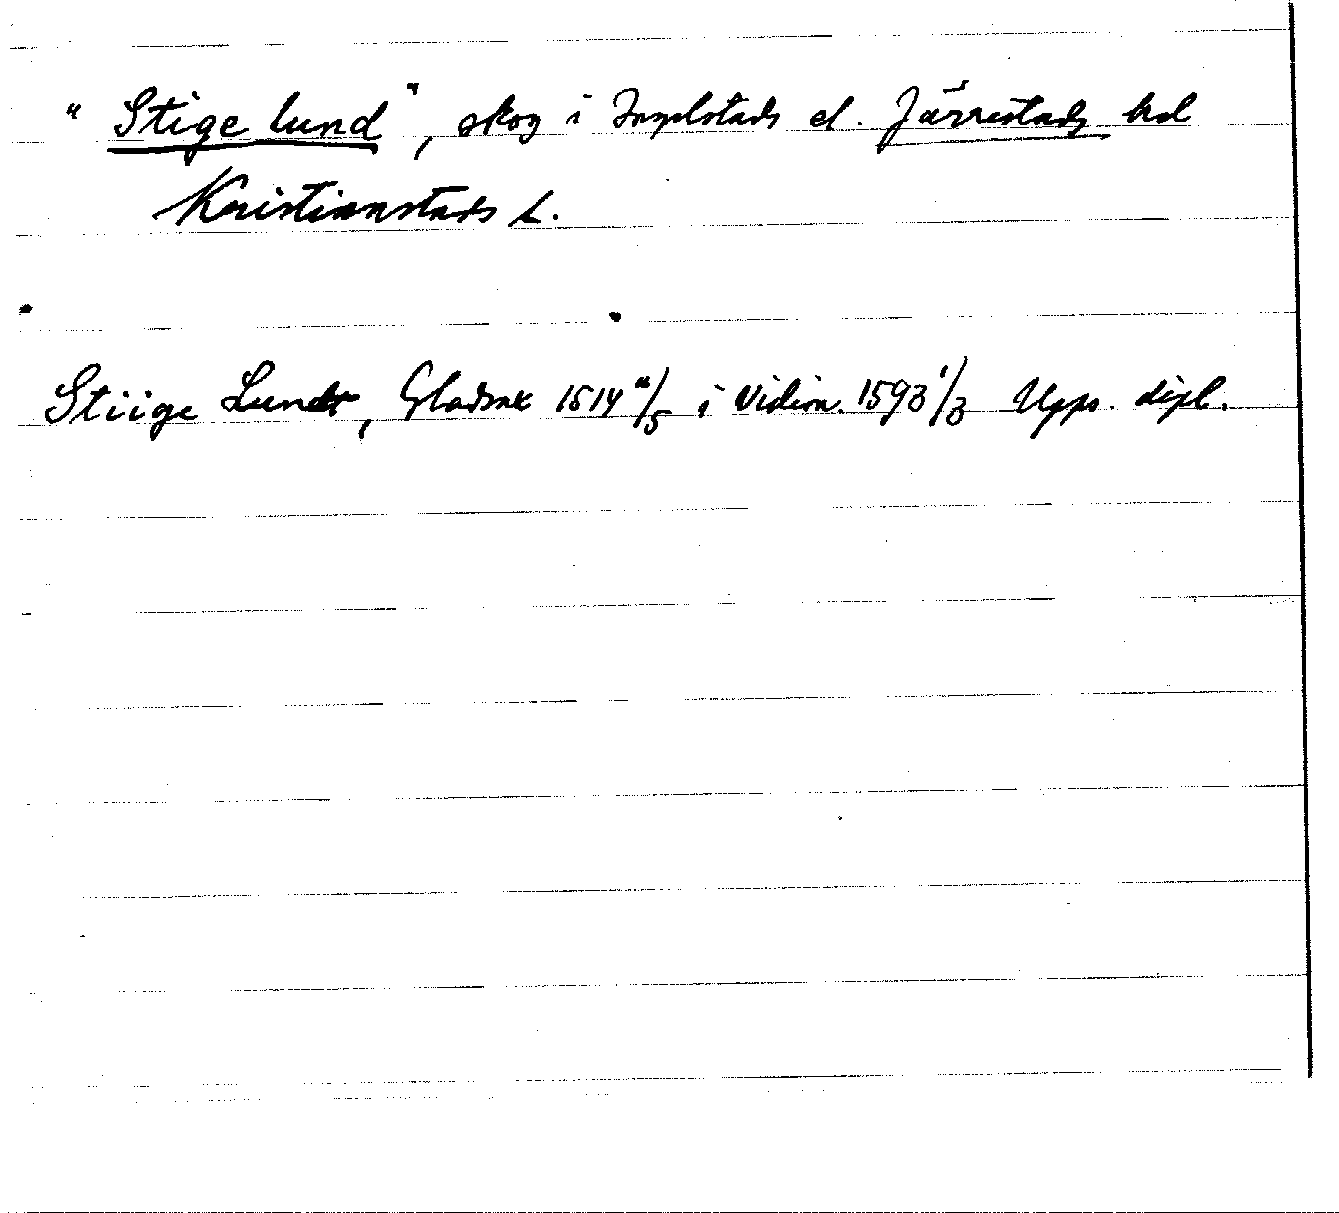 "Stige lund", skog i Ingelstads el. Järrestads hd
Kristianstads L.
Stiige Lundt, Gladsax 1514 /5 i Vidim. 1593 1/3 Upps. dipl.